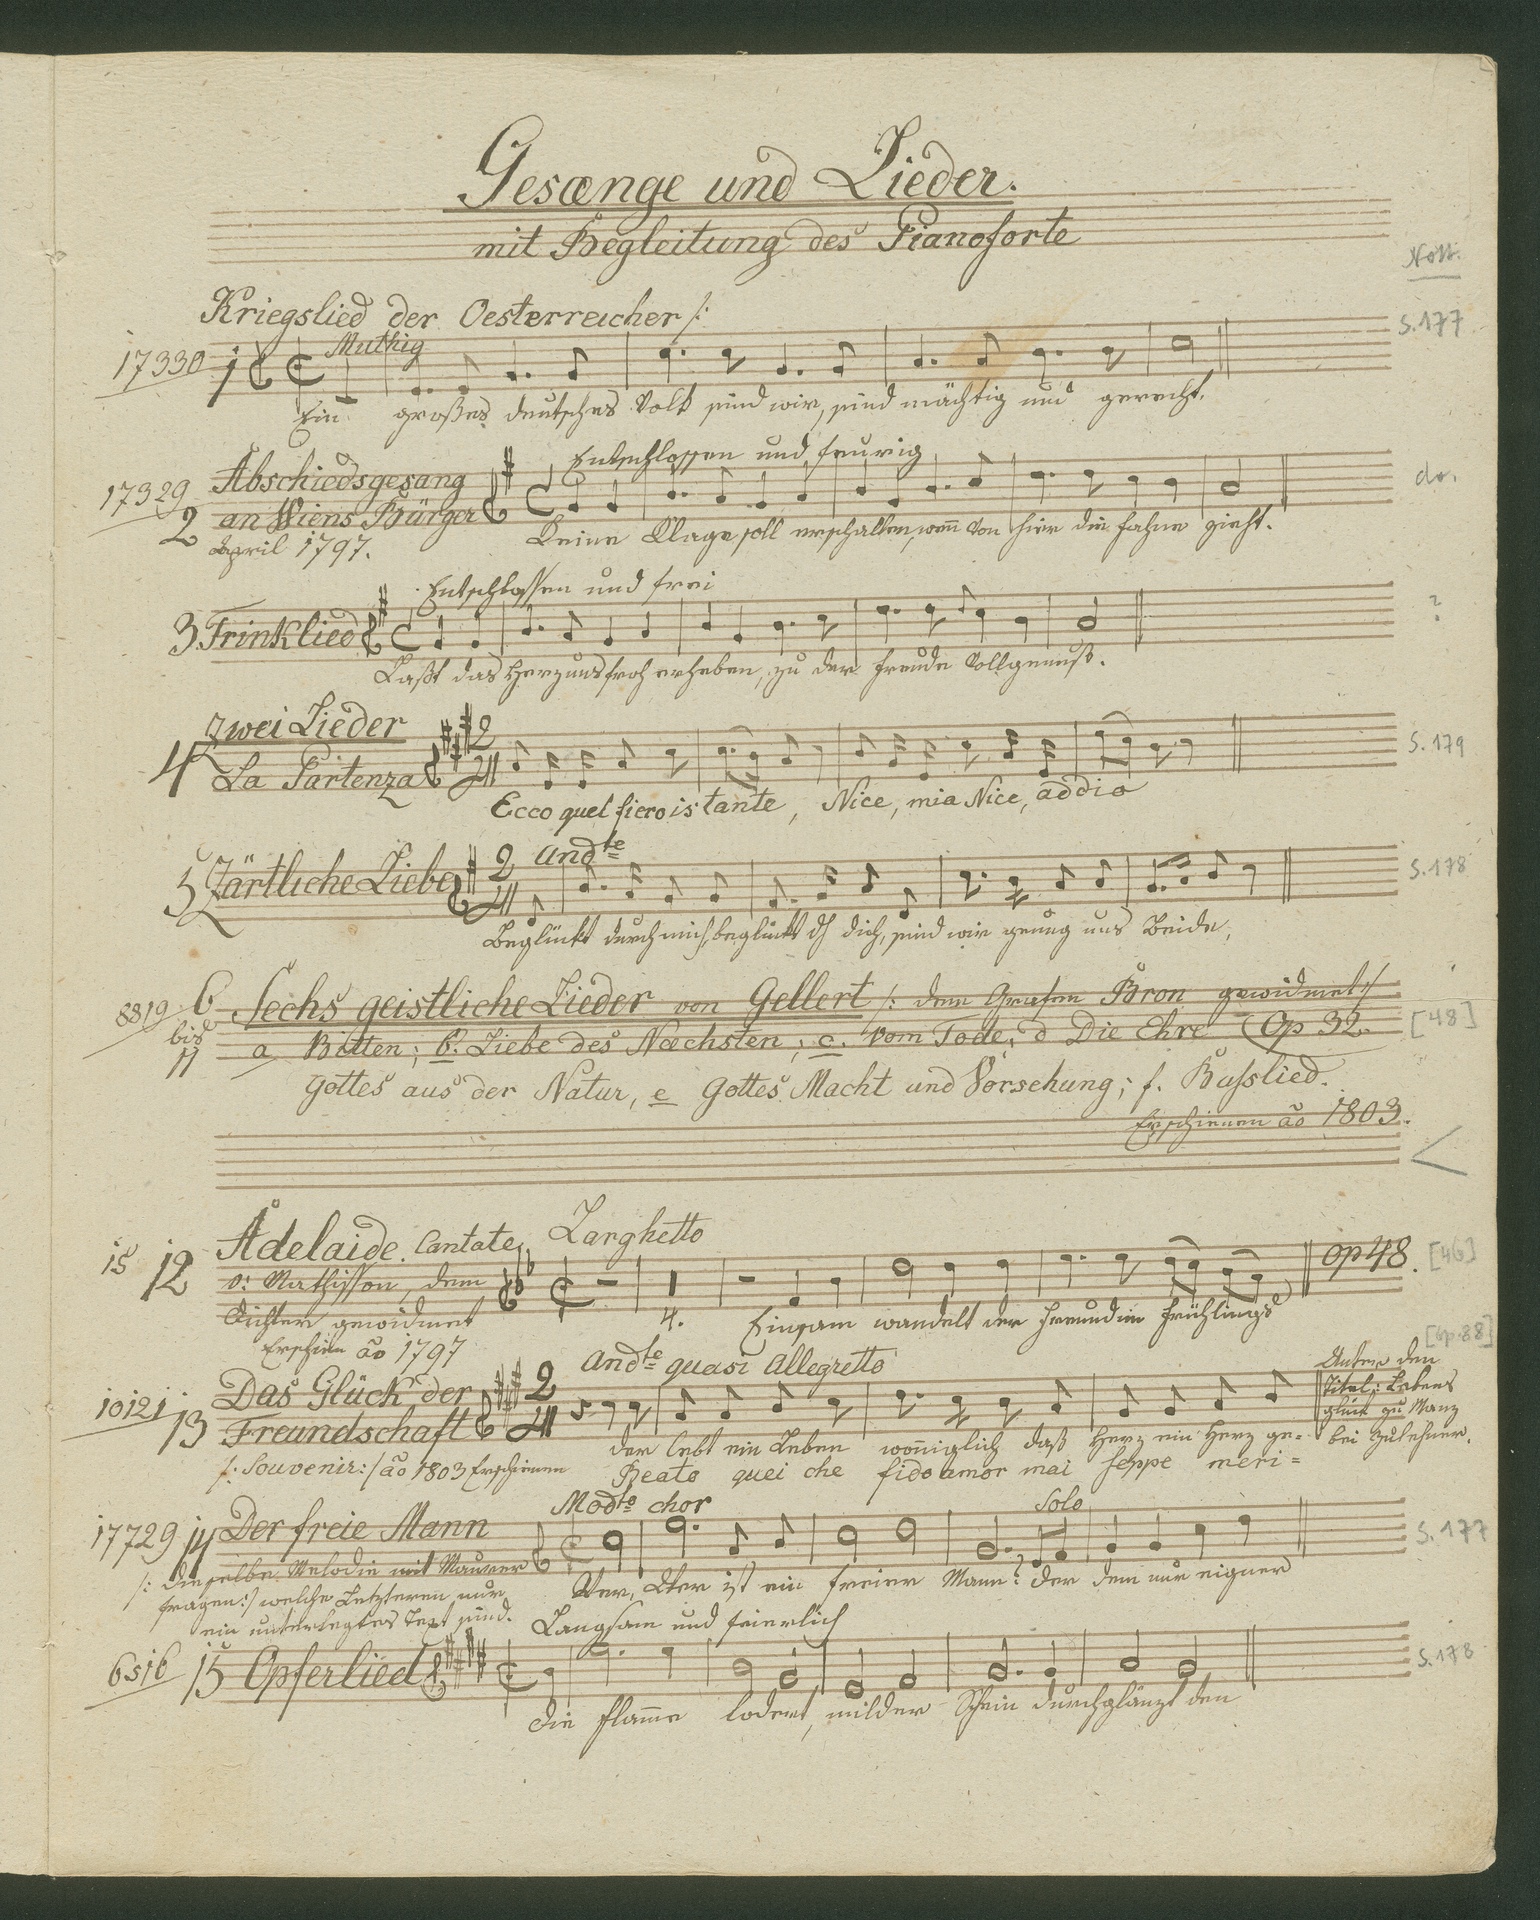 Gesænge und Lieder.
mit Begleitung des Pianoforte
Nott.
Kriegslied der Oesterreicher /:
17330 1 Muthig S. 177
Ein großes deutsches Volk sind wir, sind mächtig und gerecht.
Entschlossen und feurig
17329 2 Abschiedsgesang do.
an Wiens Bürger
April 1797.
Keine Klage soll erschallen, wenn von hier die Fahne zieht.
Entschlossen und frei
3. Trinklied ?
Laßt das Herz uns froh erheben, zu der Freude Vollgenuß.
Zwei Lieder
4 La Partenza 2/4 S. 179
Ecco quel fiero istante, Nice, mia Nice, addio
5 Zärtliche Liebe 2/4 Andte S. 178
Beglückt durch mich, beglückt dch dich, sind wir genug uns Beide,
8819 bis 6 Sechs geistliche Lieder von Gellert /: dem Grafen Bron gewidmet :/
11 a Bitten; b. Liebe des Næchsten; c. vom Tode; d Die Ehre (Op 32. [48]
Gottes aus der Natur, e Gottes Macht und Vorsehung; f. Busslied.
Erschienen ão 1803.
15 12 Adelaide. Cantate, Larghetto op 48. [46]
v: Mathisson, dem
Dichter gewidmet
Erschien ão 1797
4. Einsam wandelt der Freund im Frühlings
[op. 88]
10121 13 Das Glück der 2/4 Andte quasi Allegretto
Freundschaft
/: Souvenir :/ ão 1803 Erschienen
Unter den
Titel: Lebens
glück zu Mainz
bei Zulehner.
Der lebt ein Leben wonniglich daß Herz ein Herz ge=
Beato quei che fido amor mai seppe meri=
Modte chor Solo
17729 14 Der freie Mann S. 177
/: dieselbe Melodie mit Maurer
fragen :/ welche Letzteren nur
ein unterlegtes Text sind.
Wer, Wer ist ein freier Mann? Der dem nur eigner
Langsam und feierlich
6516 15 Opferlied S. 178
Die Flamme lodert, milder Schein durchglänzt den